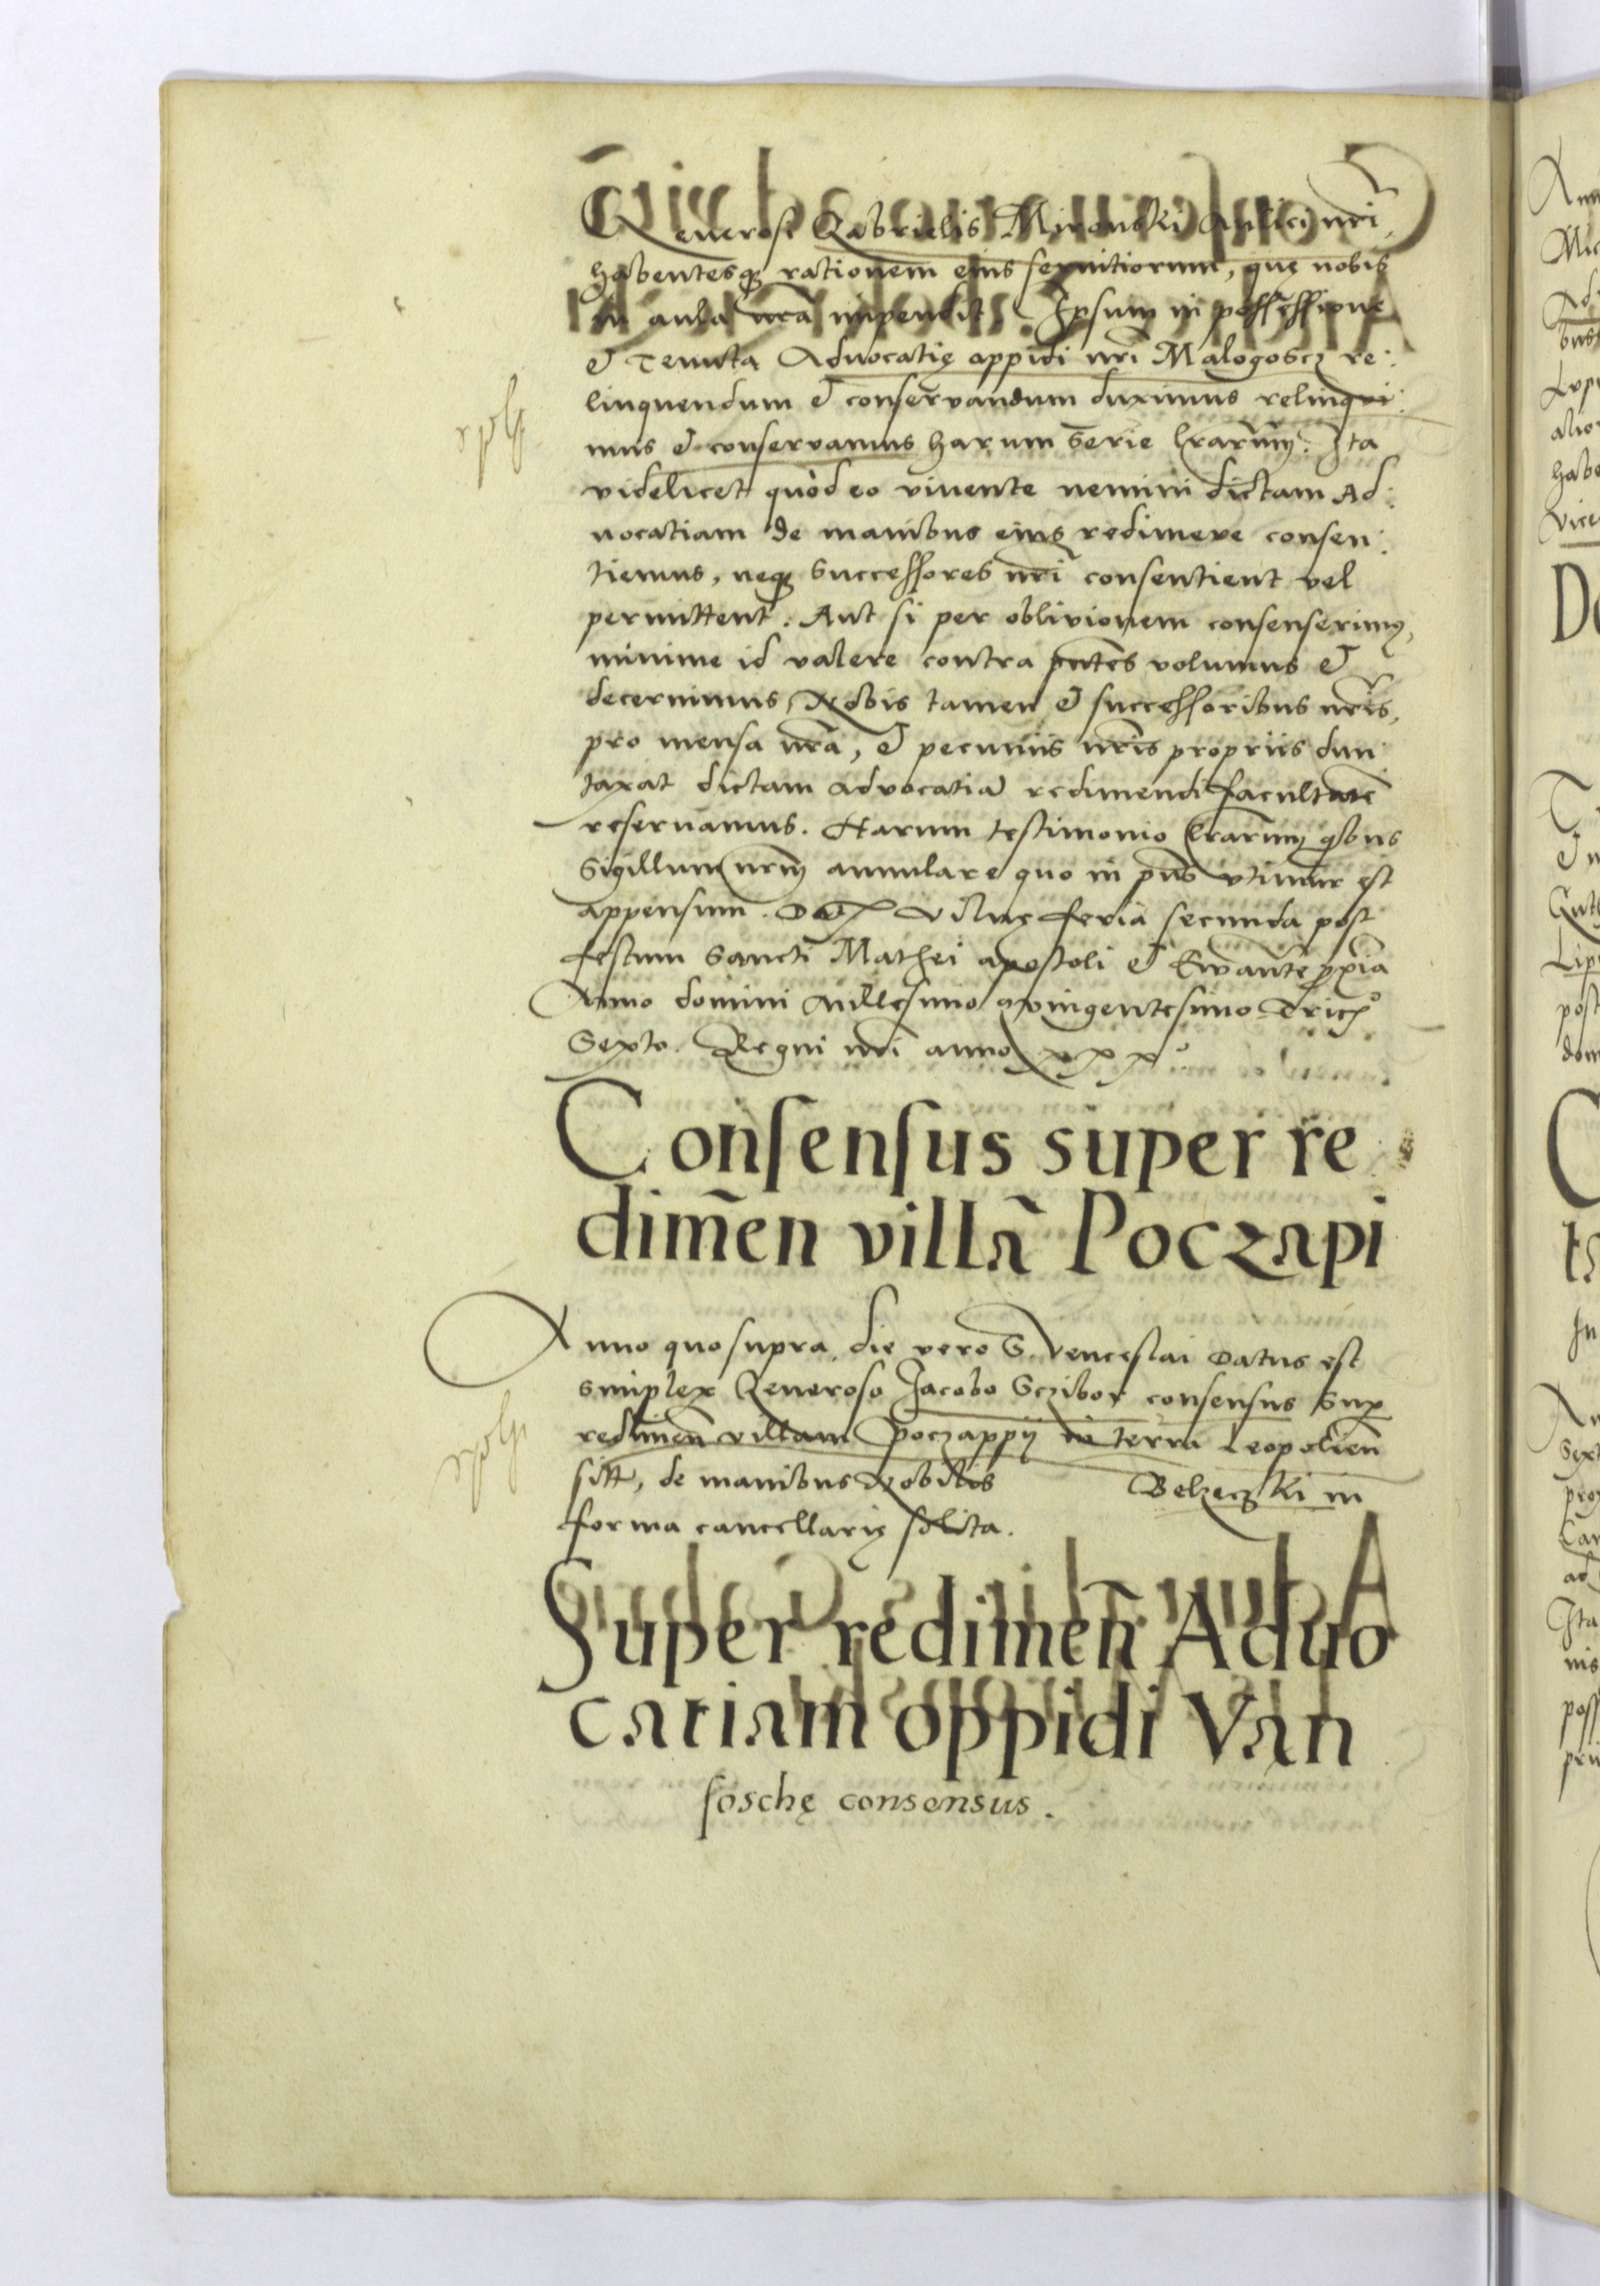 Generosi Gabrielis Mironski Aulici nr̃i,
habentesq3 rationem eius seruitiorum, quę nobis
in aula nr̃a impendit, Ipsum in possessione
& Tenuta Aduocatię appidi nr̃i Malogoscz re:
linquendum & conseruandum duximus relinqui:
mus & conseruamus harum serie lr̃arum. Ita
videlicet quòd eo viuente nemini dictam Ad:
uocatiam de manibus eius redimere consen:
tiemus, neq3 successores nr̃i consentient vel
permittent. Aut si per obliuionem consenserimus,
minime id valere contra pñtes volumus &
decernimus, Nobis tamen & successoribus nr̃is,
pro mensa nr̃a, & pecuniis nr̃is propriis dun
taxat dictam aduocatiã redimendi facultatẽ
reseruamus. Harum testimonio lr̃arum qbus
Sigillum nr̃m annulare quo in pñs vtimur est
appensum. Dat Vilnę feria secunda post
festum Sancti Mathei apostoli & Ewañte pxia
Anno domini Millesimo quingentesimo Tric°
Sexto. Regni nr̃i anno xxx°
Consensus super re
dim̃en villã Poczapi
Anno quo supra, die vero S. Venceslai Datus est
simplex Generoso Jacobo Sczibor consensus sup
redimeñ villam Poczappij in terra Leopolieñ
sitt, de manibus Nobilis Belzeczki in
forma cancellarię solita.
Super redimeñ Aduo
catiam oppidi Van
soschę consensus.